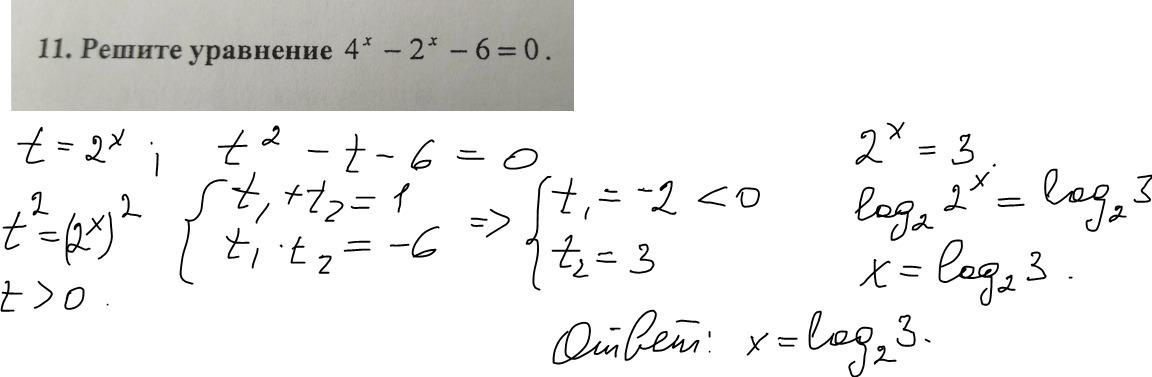 11. Решите уравнение 4ˣ − 2ˣ − 6 = 0.
t = 2ˣ ; t² − t − 6 = 0
t² = (2ˣ)²
t > 0.
{ t₁ + t₂ = 1
t₁ · t₂ = −6
=> { t₁ = −2 < 0
t₂ = 3
2ˣ = 3.
log₂ 2ˣ = log₂ 3
x = log₂ 3.
Ответ: x = log₂ 3.